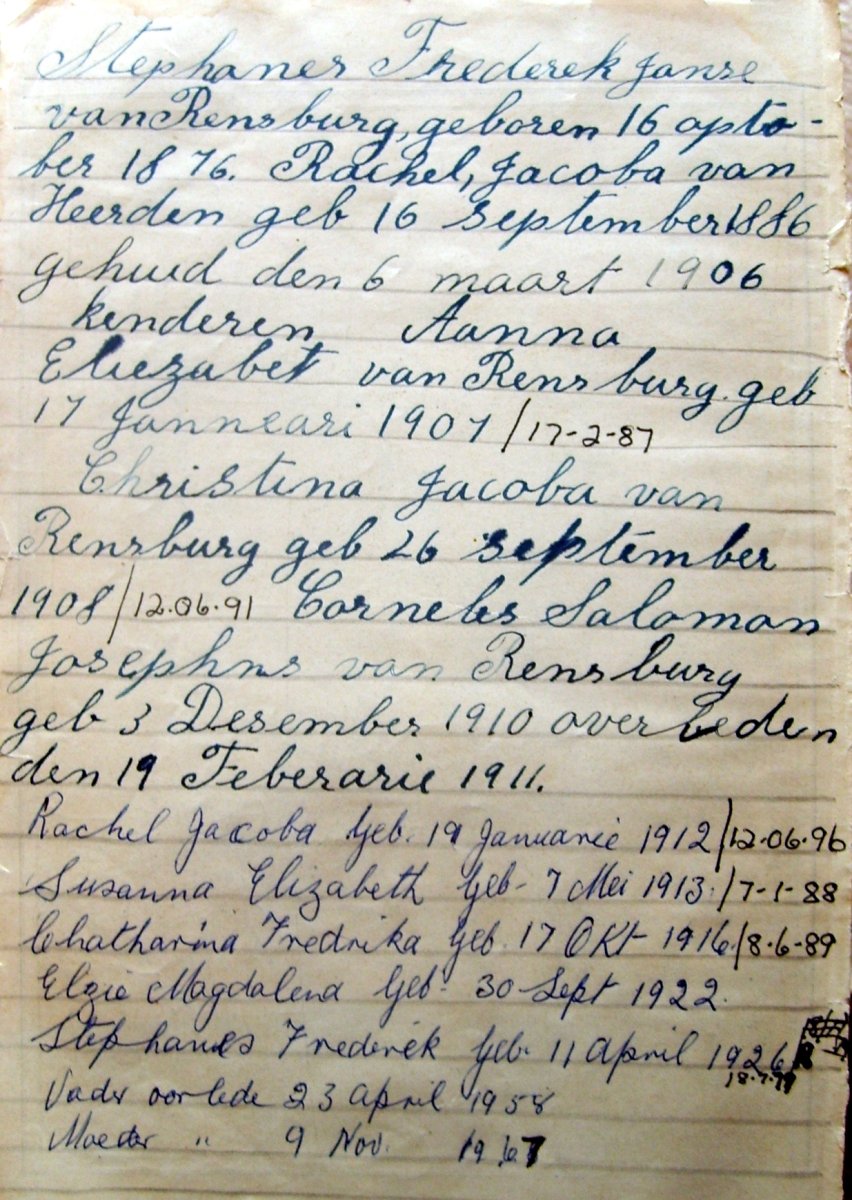 Stephanes Frederek Janse
van Rensburg, geboren 16 opto-
ber 1876. Rachel, Jacoba van
Heerden geb 16 september 1886
gehuud den 6 maart 1906
kenderen Aanna
Eliezabet van Rensburg. geb
17 Janneari 1907 / 17-2-87
Christina Jacoba van
Rensburg geb 26 september
1908 / 12.06.91 Corneles Salomon
Josephns van Rensburg
geb 3 Desember 1910 overleden
den 19 Feberarie 1911.
Rachel Jacoba Geb. 19 Januarie 1912 / 12.06.96
Susanna Elizabeth Geb- 7 Mei 1913. / 7-1-88
Chatharina Fredrika Geb. 17 Okt 1916. / 8-6-89
Elzie Magdalena Geb- 30 Sept 1922.
Stephanes Frederek Geb. 11 April 1926
Vader oorlede 23 April 1958
Moeder " 9 Nov. 1967